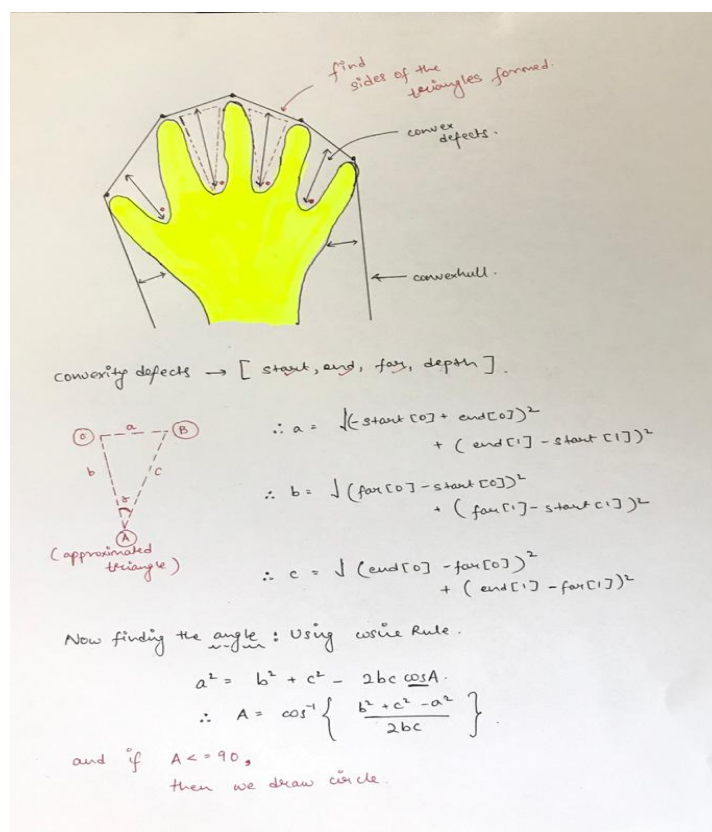 find
sides of the
triangles formed.
convex
defects.
convexhull.
convexity defects → [ start, end, far, depth ].
C a B
b c
γ
A
(approximated
triangle)
∴ a = √(-start[0] + end[0])²
+ (end[1] - start[1])²
∴ b = √(far[0] - start[0])²
+ (far[1] - start[1])²
∴ c = √(end[0] - far[0])²
+ (end[1] - far[1])²
Now finding the angle : Using cosine Rule.
a² = b² + c² - 2bc cosA.
∴ A = cos⁻¹ { b² + c² - a² / 2bc }.
and if A <= 90,
then we draw circle.